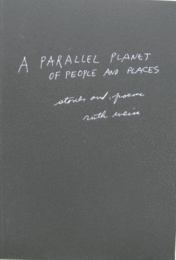 A PARALLEL PLANET
OF PEOPLE AND PLACES
stories and poems
ruth weiss